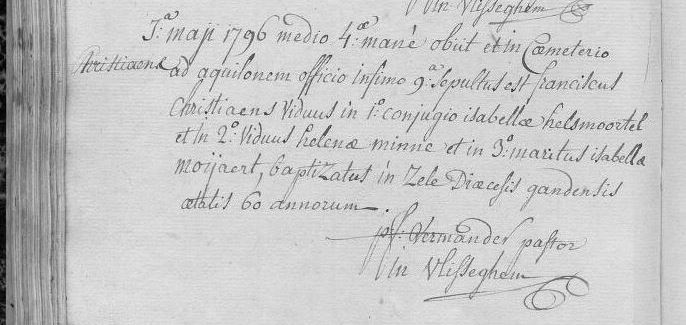 in Vlisseghem
3.ª maji 1796 medio 4.æ mané obiit et in Cœmeterio
Christiaens
ad aquilonem officio infimo 9.ª sepultus est franciscus
Christiaens viduus in 1.º conjugio isabellæ helsmoortel
et in 2.º viduus helenæ minne et in 3.º maritus isabellæ
moijaert, baptizatus in Zele Diœcesis gandensis
ætatis 60 annorum.
Vermander pastor
in Vlisseghem